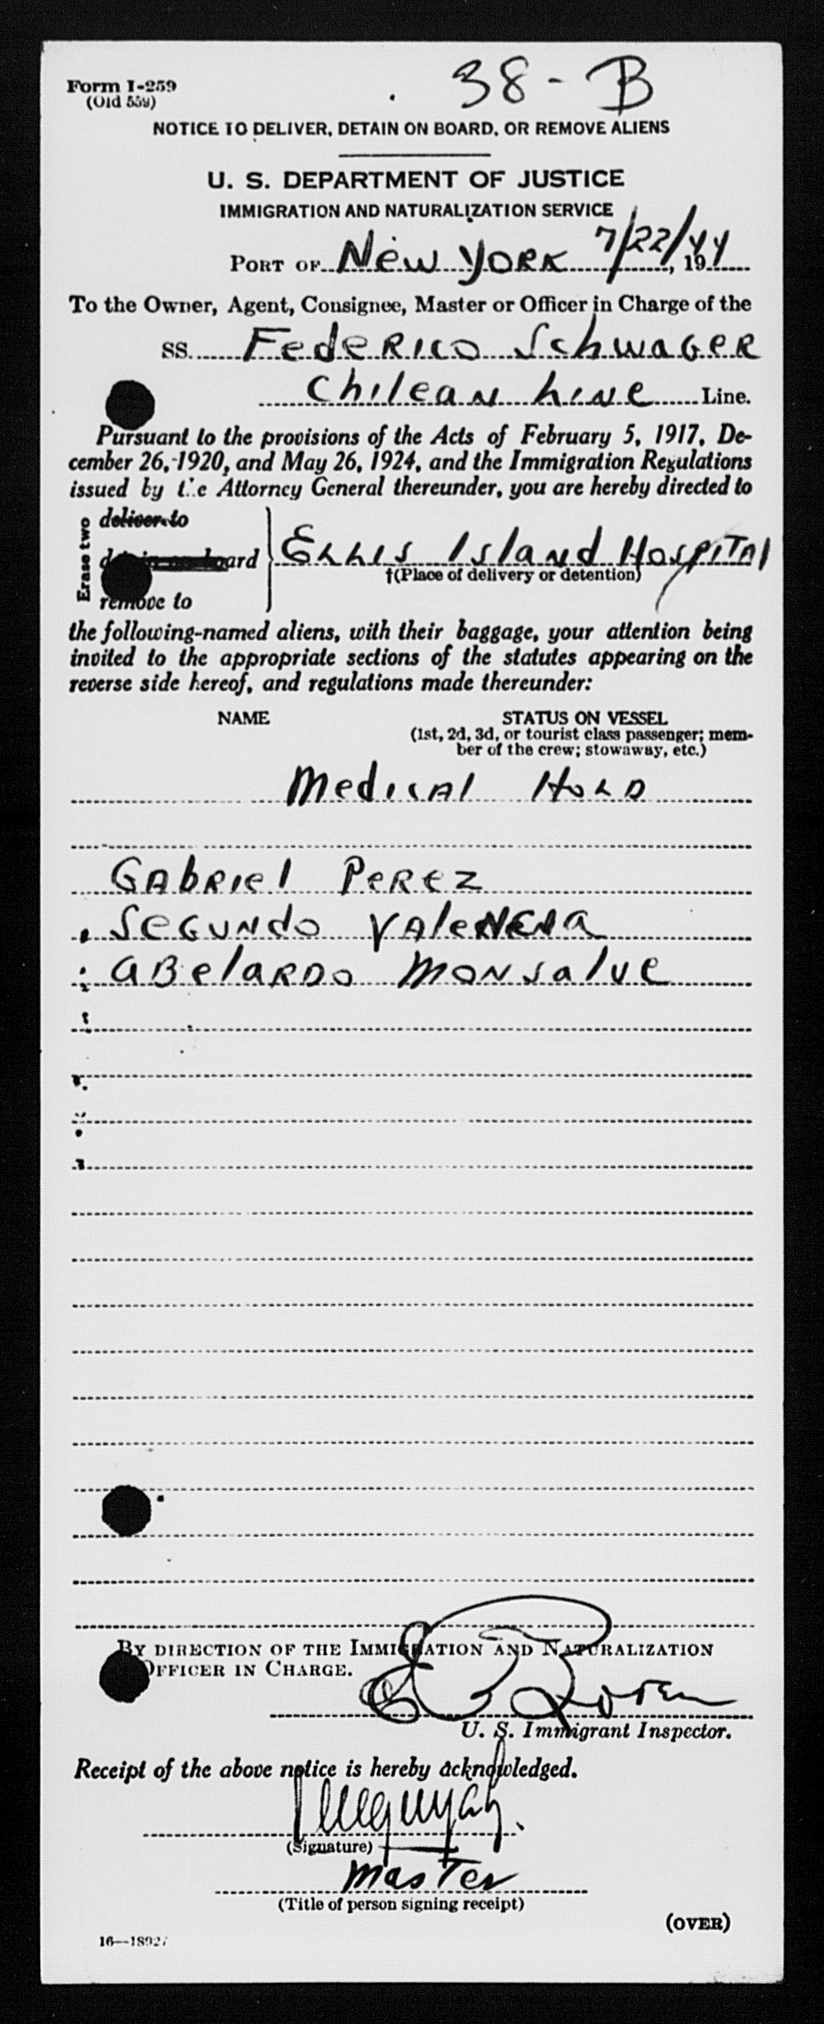 Form I-259
(Old 559)
38-B
NOTICE TO DELIVER, DETAIN ON BOARD, OR REMOVE ALIENS
U. S. DEPARTMENT OF JUSTICE
IMMIGRATION AND NATURALIZATION SERVICE
PORT OF New York 7/22/44, 19
To the Owner, Agent, Consignee, Master or Officer in Charge of the
SS. Federico Schwager
Chilean Line Line.
Pursuant to the provisions of the Acts of February 5, 1917, De-
cember 26, 1920, and May 26, 1924, and the Immigration Regulations
issued by the Attorney General thereunder, you are hereby directed to
Erase two
deliver to
board
remove to
Ellis Island Hospital
†(Place of delivery or detention)
the following-named aliens, with their baggage, your attention being
invited to the appropriate sections of the statutes appearing on the
reverse side hereof, and regulations made thereunder:
NAME STATUS ON VESSEL
(1st, 2d, 3d, or tourist class passenger; mem-
ber of the crew; stowaway, etc.)
Medical Hold
Gabriel Perez
Segundo
Abelardo Monsalve
BY DIRECTION OF THE IMMIGRATION AND NATURALIZATION
OFFICER IN CHARGE.
U. S. Immigrant Inspector.
Receipt of the above notice is hereby acknowledged.
(Signature)
Master
(Title of person signing receipt)
(OVER)